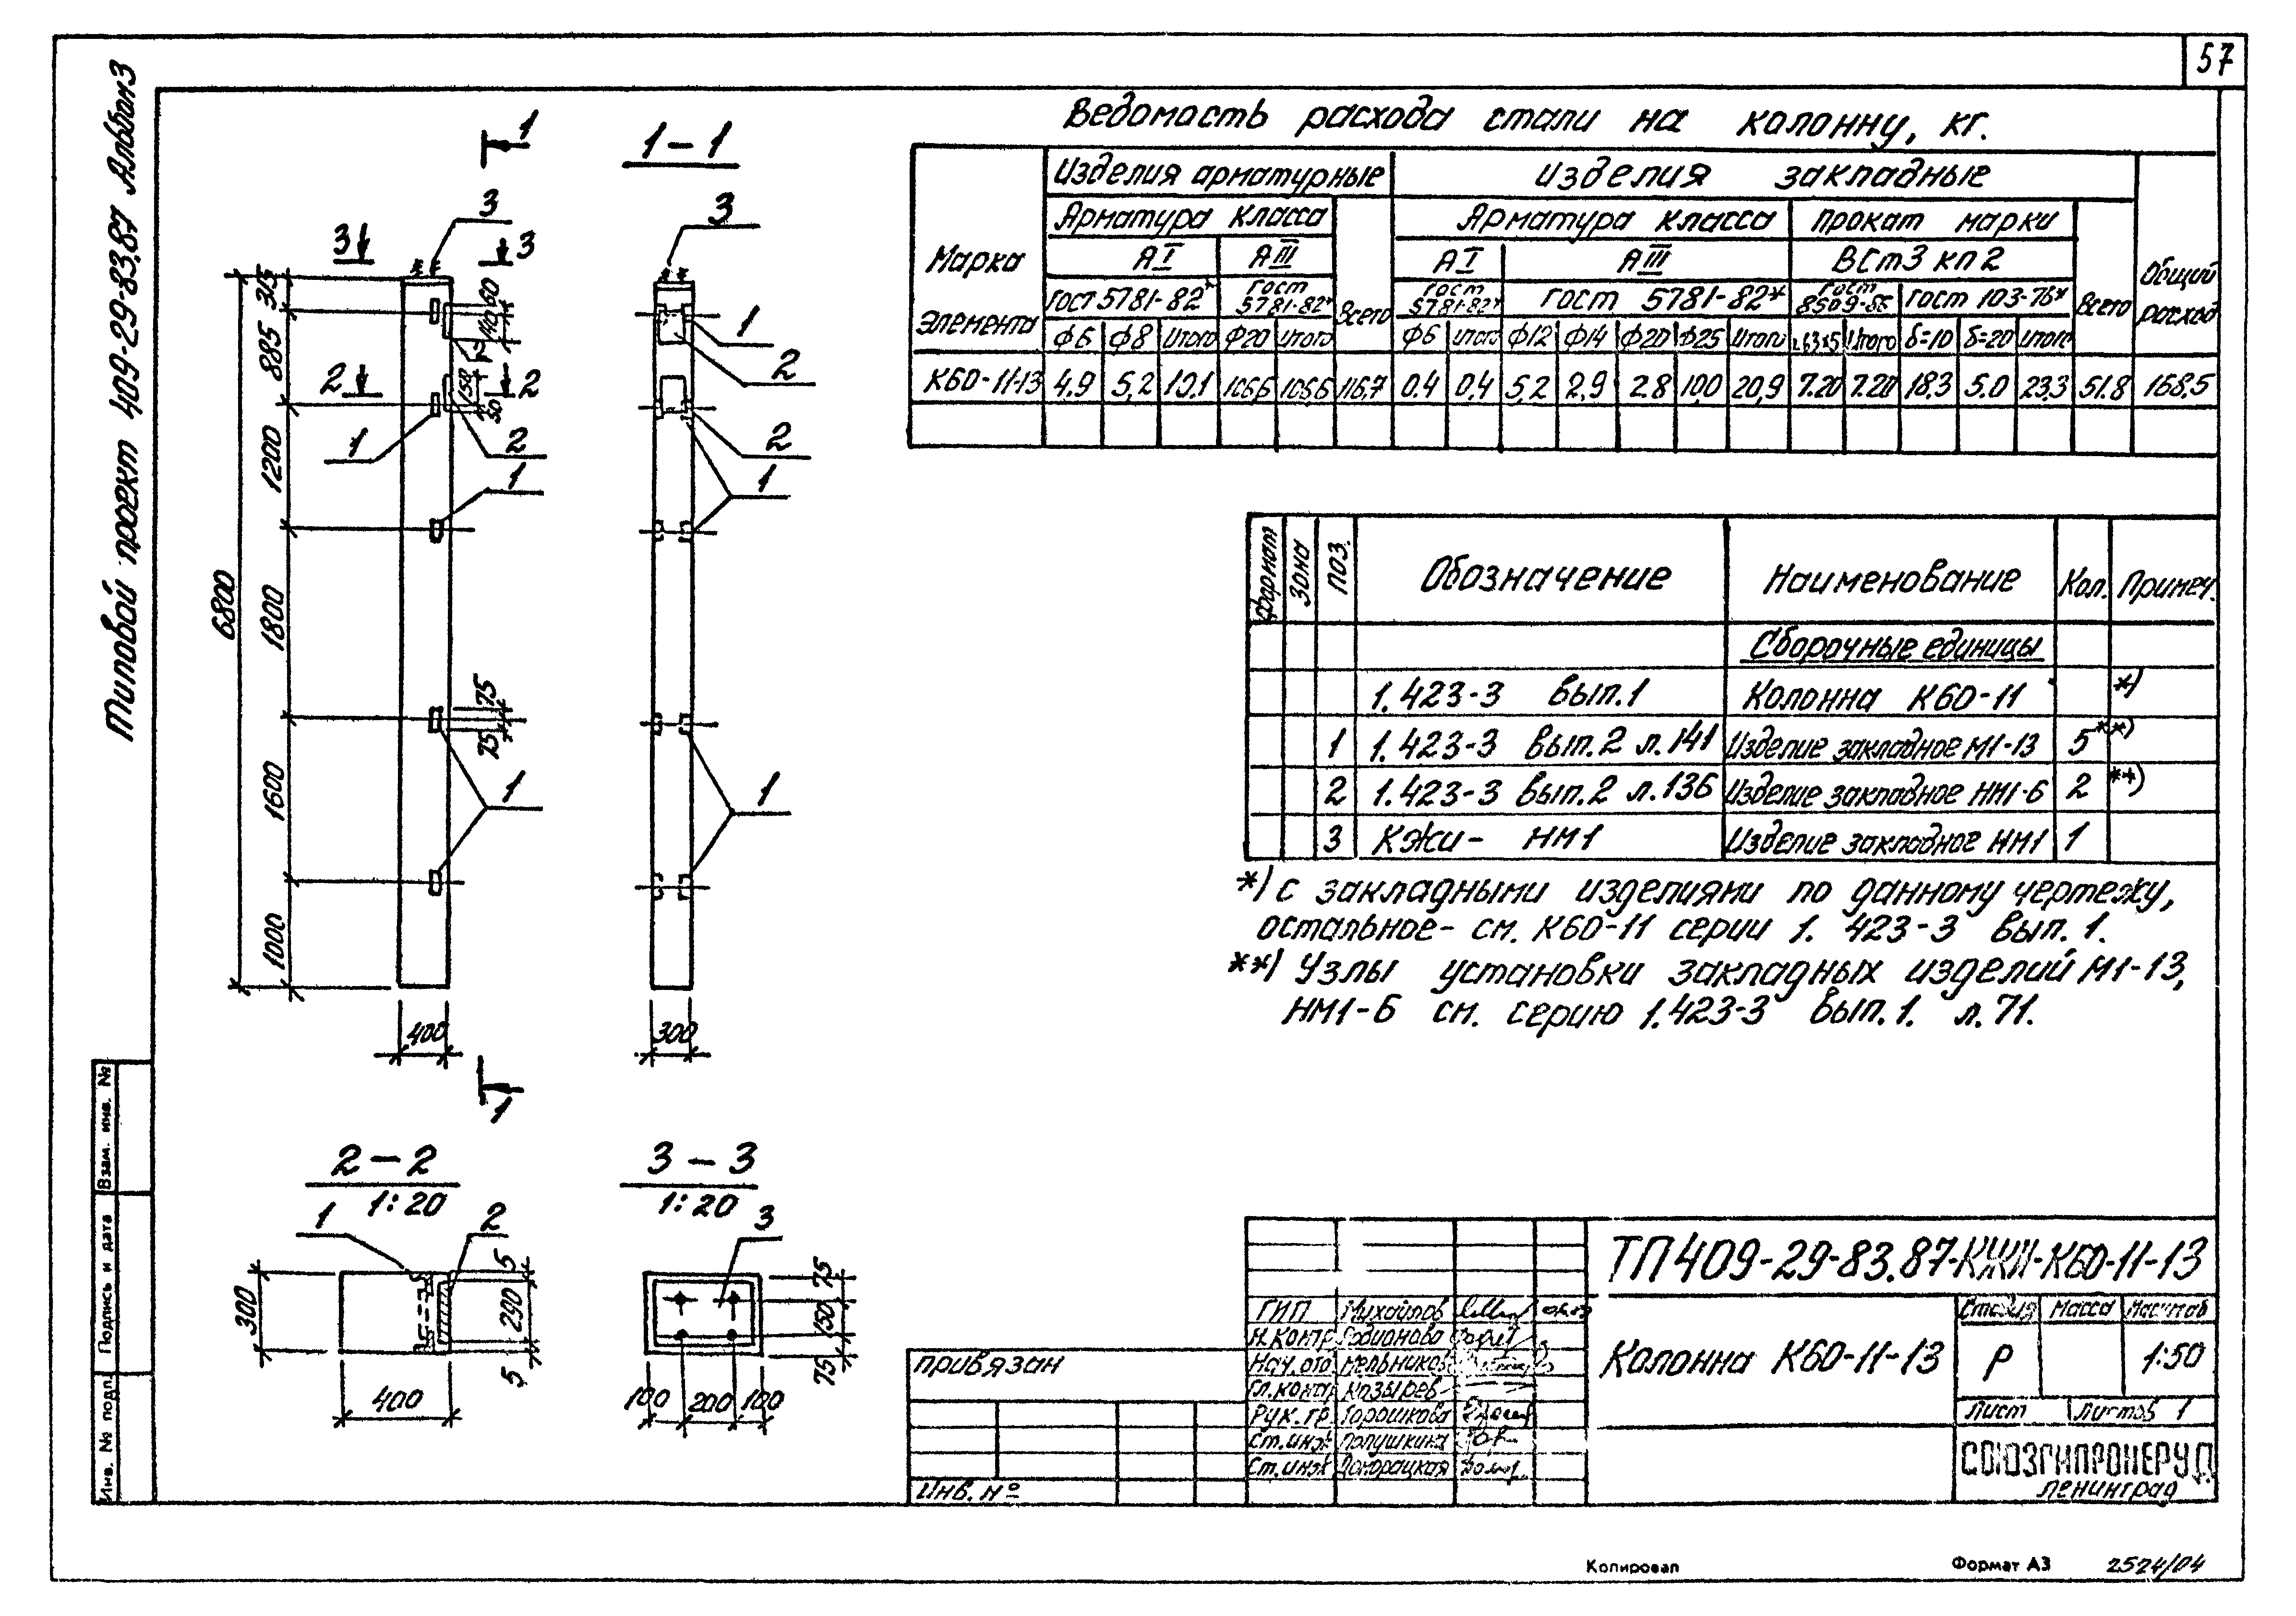 57
Типовой проект 409-29-83.87 Альбом 3
Ведомость расхода стали на колонну, кг.
Марка элемента
Изделия арматурные
Изделия закладные
Общий расход
Арматура класса
Всего
Арматура класса
Прокат марки
Всего
АI
АIII
АI
АIII
ВСт3 кп2
ГОСТ 5781-82*
ГОСТ 5781-82*
ГОСТ 5781-82*
ГОСТ 5781-82*
ГОСТ 8509-86
ГОСТ 103-76*
Ф6 Ф8 Итого Ф20 Итого Ф6 Итого Ф12 Ф14 Ф20 Ф25 Итого 63х5 Итого δ=10 δ=20 Итого
К60-11-13 4.9 5,2 10,1 106,6 106,6 116,7 0.4 0,4 5,2 2,9 2.8 10,0 20,9 7.20 7.20 18.3 5.0 23.3 51.8 168,5
1
1-1
3
3
3
3
315
60
140
885
2
2
150
50
1
2
1
1200
1
2
2
1
6800
1800
75
75
1600
1
1
1000
400
300
1
Формат Зона Поз. Обозначение Наименование Кол. Примеч.
Сборочные единицы
1.423-3 вып.1 Колонна К60-11 *)
1 1.423-3 вып.2 л.141 Изделие закладное М1-13 5 **)
2 1.423-3 вып.2 л.136 Изделие закладное НМ1-6 2 **)
3 КЖИ- НМ1 Изделие закладное НМ1 1
*) С закладными изделиями по данному чертежу,
остальное- см. К60-11 серии 1.423-3 вып. 1.
**) Узлы установки закладных изделий М1-13,
НМ1-6 см. серию 1.423-3 вып.1. л.71.
2-2
1:20
1
2
300
5
290
5
400
3-3
1:20
3
75
150
75
100 200 100
Взам. инв. №
Подпись и дата
Инв. № подл.
Привязан
Инв. №
ТП 409-29-83.87-КЖИ-К60-11-13
ГИП Михайлов
Н.контр. Родионова
Нач. отд. Мельников
Гл. констр. Козырев
Рук. гр. Горошкова
Ст. инж. Полушкина
Ст. инж.
Колонна К60-11-13
Стадия Масса Масштаб
Р 1:50
Лист Листов 1
СОЮЗГИПРОНЕРУД
Ленинград
Копировал
Формат А3
2524/04